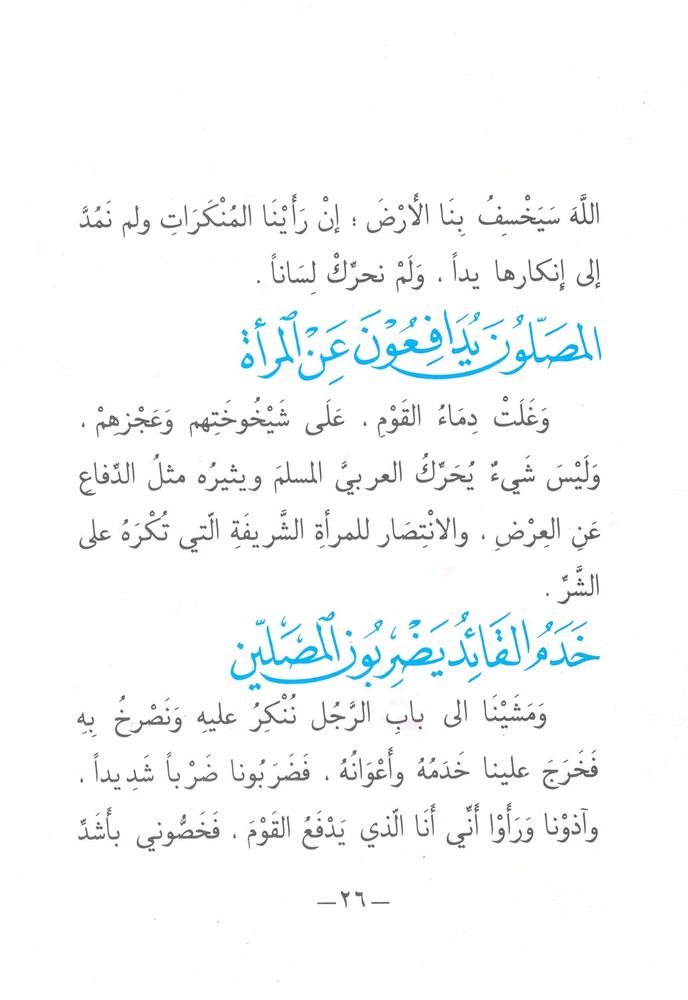 اللَّهَ سَيَخْسِفُ بِنَا الأَرْضَ ؛ إنْ رَأَيْنَا المُنْكَرَاتِ ولم نَمُدَّ
إلى إنكارها يداً ، وَلَمْ نحرِّكْ لِسَاناً .
المصَلّونَ يُدَافِعُوْنَ عَنِ المرأة
وَغَلَتْ دِمَاءُ القَوْمِ ، عَلَى شَيْخُوخَتِهم وَعَجْزِهِمْ ،
وَلَيْسَ شَيءٌ يُحَرَِّكُ العربيَّ المسلمَ ويثيرُه مثلُ الدِّفاعِ
عَنِ العِرْضِ ، والانْتِصَار للمرأةِ الشَّريفَةِ الّتي تُكْرَهُ على
الشَّرِّ .
خَدَمُ القَائِد يَضْرِبُون المصَلِّين
وَمَشَيْنَا الى بابِ الرَّجُل نُنْكِرُ عليهِ وَنَصْرخُ بِهِ
فَخَرَجَ علينا خَدَمُهُ وأَعْوَانُهُ ، فَضَرَبُونا ضَرْباً شَدِيداً ،
وآذوْنا وَرَأَوْا أَنِّي أَنَا الّذي يَدْفَعُ القَوْمَ ، فَخَصُّوني بأَشَدِّ
—٢٦—